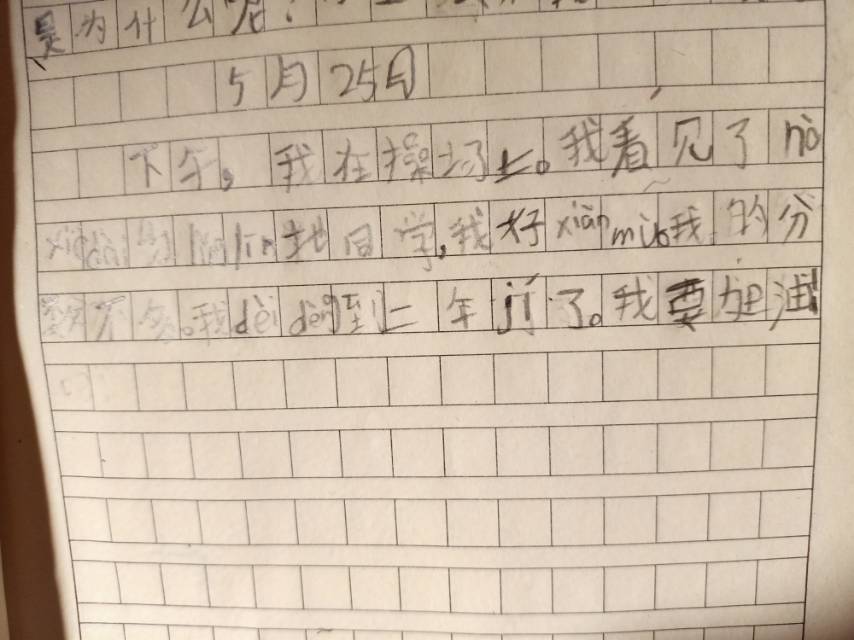 是为什么呢？
5月25日
下午，我在操场上。我看见了
地同学，我好xiàn mù我的分
不多。我děi děng到二年jí了。我要加油！